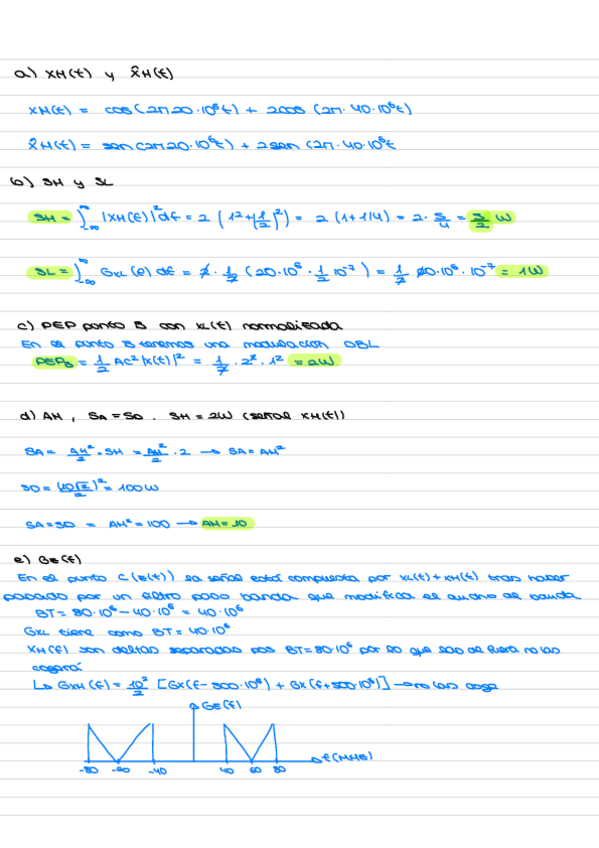 a) XH(t) y x̂H(t)
XH(t) = cos(2π20·10⁶t) + 2cos(2π·40·10⁶t)
x̂H(t) = sen(2π20·10⁶t) + 2sen(2π·40·10⁶t
b) SH y SL
SH = ∫_{-∞}^{∞} |XH(f)|² df = 2 (1² + (1/2)²) = 2 (1+1/4) = 2· 5/4 = 5/2 W
SL = ∫_{-∞}^{∞} GXL(f) df = 2· 1/2 (20·10⁶ · 1/2 10⁻⁷) = 1/2 20·10⁶·10⁻⁷ = 1W
c) PEP punto B con XL(t) normalizada
En el punto B tenemos una modulación DBL
PEPB = 1/2 Ac² |X(t)|² = 1/2 · 2² · 1² = 2W
d) AH, SA = SD. SH = 2W (señal XH(t))
SA = AH²/2 · SH = AH²/2 · 2 → SA = AH²
SD = (10√2)²/2 = 100W
SA = SD = AH² = 100 → AH = 10
e) GE(f)
En el punto C (E(t)) la señal está compuesta por XL(t) + XH(t) tras haber
pasado por un filtro paso banda que modifica el ancho de banda
BT = 80·10⁶ - 40·10⁶ = 40·10⁶
GXL tiene como BT = 40·10⁶
XH(f) son deltas separadas pos BT = 80·10⁶ por lo que se no las
cogerá
↳ GXH(f) = 10²/2 [GX(f-300·10⁶) + GX(f+300·10⁶)] → no las coge
GE(f)
-80 -60 -40 40 60 80 f(MHz)